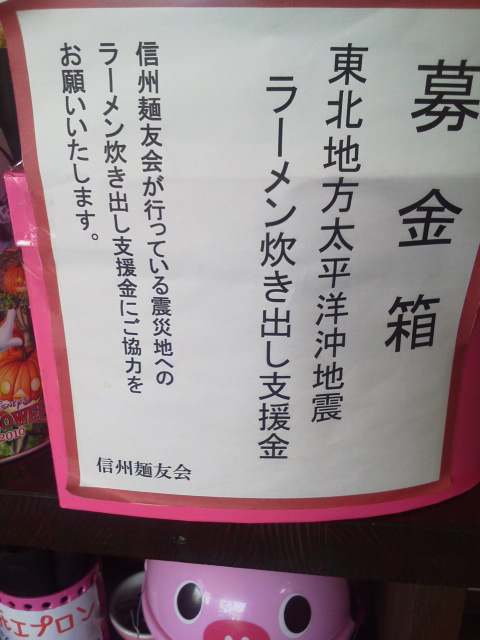 募金箱
東北地方太平洋沖地震
ラーメン炊き出し支援金
信州麺友会が行っている震災地への
ラーメン炊き出し支援金にご協力を
お願いいたします。
信州麺友会
2010
エプロン